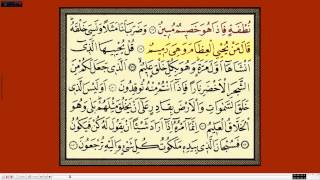 نُطْفَةٍ فَاِذَا هُوَ خَصٖيمٌ مُبٖينٌ ۝ وَضَرَبَ لَنَا مَثَلًا وَنَسِىَ خَلْقَهُ
قَالَ مَنْ يُحْيِى الْعِظَامَ وَهِىَ رَمٖيمٌ ۝ قُلْ يُحْيٖيهَا الَّذٖى
اَنْشَاَهَا اَوَّلَ مَرَّةٍ وَهُوَ بِكُلِّ خَلْقٍ عَلٖيمٌ ۝ اَلَّذٖى جَعَلَ لَكُمْ مِنَ
الشَّجَرِ الْاَخْضَرِ نَارًا فَاِذَا اَنْتُمْ مِنْهُ تُوقِدُونَ ۝ اَوَلَيْسَ الَّذٖى
خَلَقَ السَّمٰوَاتِ وَالْاَرْضَ بِقَادِرٍ عَلٰى اَنْ يَخْلُقَ مِثْلَهُمْ بَلٰى وَهُوَ
الْخَلَّاقُ الْعَلٖيمُ ۝ اِنَّمَا اَمْرُهُ اِذَا اَرَادَ شَيْئًا اَنْ يَقُولَ لَهُ كُنْ فَيَكُونُ
۝ فَسُبْحَانَ الَّذٖى بِيَدِهٖ مَلَكُوتُ كُلِّ شَىْءٍ وَاِلَيْهِ تُرْجَعُونَ ۝